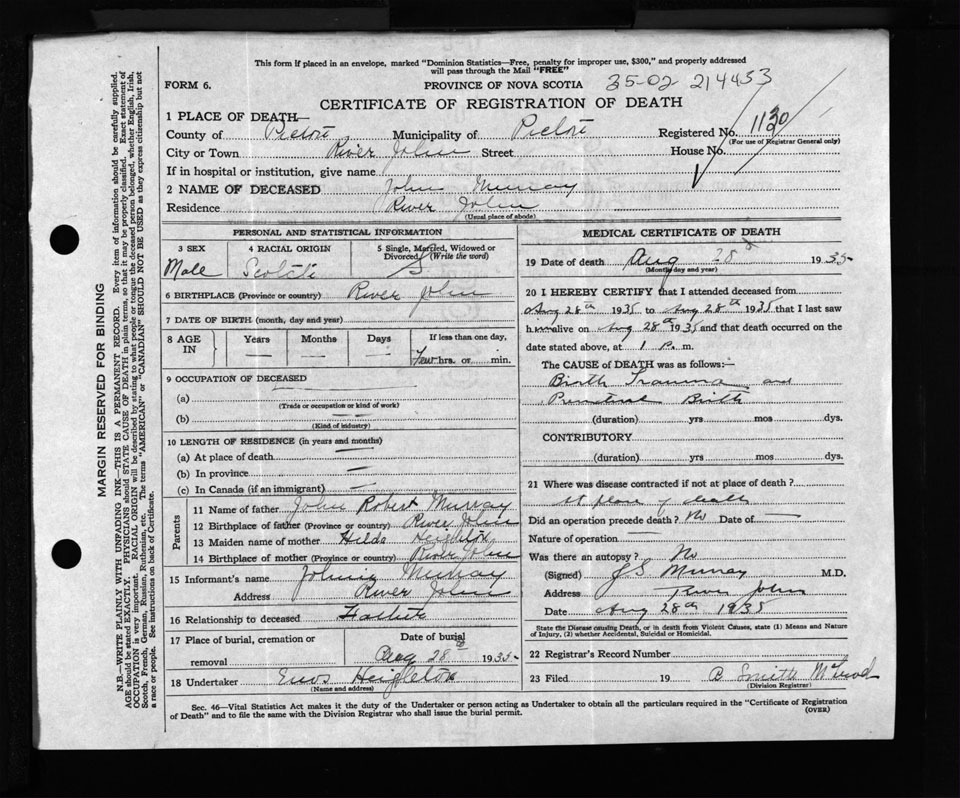 This form if placed in an envelope, marked "Dominion Statistics—Free, penalty for improper use, $300," and properly addressed
will pass through the Mail "FREE"
FORM 6.
PROVINCE OF NOVA SCOTIA 35-02 214453
CERTIFICATE OF REGISTRATION OF DEATH
1 PLACE OF DEATH—
County of Pictou Municipality of Pictou Registered No. 1130
(For use of Registrar General only)
City or Town River John Street House No.
If in hospital or institution, give name
2 NAME OF DECEASED John Murray
Residence River John
(Usual place of abode)
PERSONAL AND STATISTICAL INFORMATION
3 SEX 4 RACIAL ORIGIN 5 Single, Married, Widowed or
Divorced (Write the word)
Male Scotch S
6 BIRTHPLACE (Province or country) River John
7 DATE OF BIRTH (month, day and year)
8 AGE IN Years Months Days If less than one day,
— — — Few hrs. or min.
9 OCCUPATION OF DECEASED
(a)
(Trade or occupation or kind of work)
(b)
(Kind of industry)
10 LENGTH OF RESIDENCE (in years and months)
(a) At place of death
(b) In province
(c) In Canada (if an immigrant)
Parents
11 Name of father John Robert Murray
12 Birthplace of father (Province or country) River John
13 Maiden name of mother Hilda Heighton
14 Birthplace of mother (Province or country) River John
15 Informant's name Johnie Murray
Address River John
16 Relationship to deceased Father
17 Place of burial, cremation or
removal
Date of burial
Aug 28 1935
18 Undertaker Enos Heighton
(Name and address)
MEDICAL CERTIFICATE OF DEATH
19 Date of death Aug 28 1935
(Month, day and year)
20 I HEREBY CERTIFY that I attended deceased from
Aug 28th 1935 to Aug 28th 1935 that I last saw
him alive on Aug 28th 1935 and that death occurred on the
date stated above, at 1 P. m.
The CAUSE OF DEATH was as follows:—
Birth Trauma and
Birth
(duration) yrs mos dys.
CONTRIBUTORY
(duration) yrs mos dys.
21 Where was disease contracted if not at place of death?
at place of death
Did an operation precede death? No Date of —
Nature of operation —
Was there an autopsy? No
(Signed) J S Murray M.D.
Address River John
Date Aug 28th 1935
State the Disease causing Death, or in death from Violent Causes, state (1) Means and Nature
of Injury, (2) whether Accidental, Suicidal or Homicidal.
22 Registrar's Record Number
23 Filed 19 B Smith McLeod
(Division Registrar)
Sec. 46—Vital Statistics Act makes it the duty of the Undertaker or person acting as Undertaker to obtain all the particulars required in the "Certificate of Registration
of Death" and to file the same with the Division Registrar who shall issue the burial permit.
(OVER)
MARGIN RESERVED FOR BINDING
N.B.—WRITE PLAINLY WITH UNFADING INK—THIS IS A PERMANENT RECORD. Every item of information should be carefully supplied.
AGE should be stated EXACTLY. PHYSICIANS should STATE CAUSE OF DEATH in plain terms, so that it may be properly classified. Exact statement of
OCCUPATION is very important. RACIAL ORIGIN will be described by stating to what people or tongue the deceased person belonged, whether English, Irish,
Scotch, French, German, Russian, Ruthenian, etc. The terms "AMERICAN" or "CANADIAN" SHOULD NOT BE USED as they express citizenship but not
a race or people. See instructions on back of Certificate.